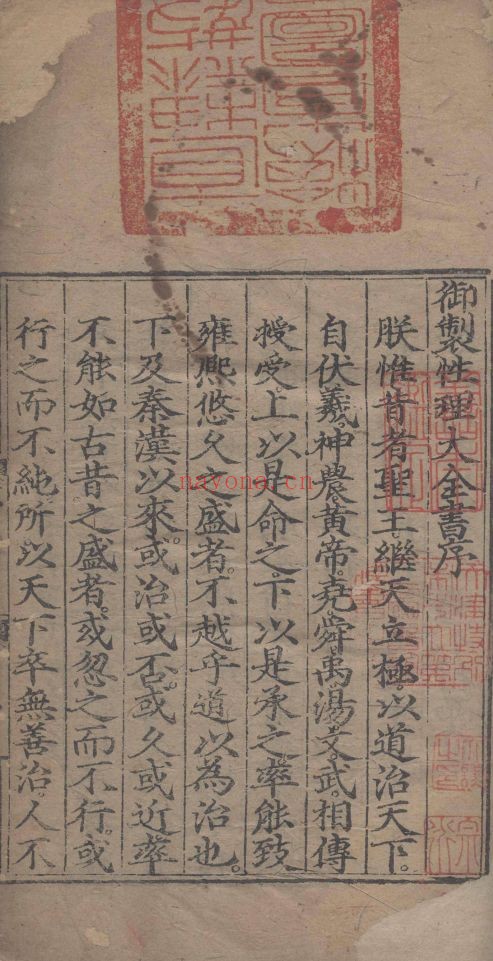 御製性理大全書序
朕惟昔者聖王繼天立極以道治天下。
自伏羲神農黄帝堯舜禹湯文武相傳
授受上以是命之下以是承之率能致
雍熙悠久之盛者。不越乎道以為治也。
下及秦漢以來。或治或否。或久或近率
不能如古昔之盛者。或忽之而不行。或
行之而不純所以天下卒無善治。人不
nayonai.cn